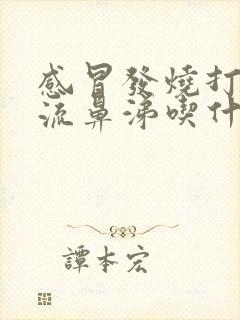 感冒發燒打
流鼻涕喫什
譚本宏